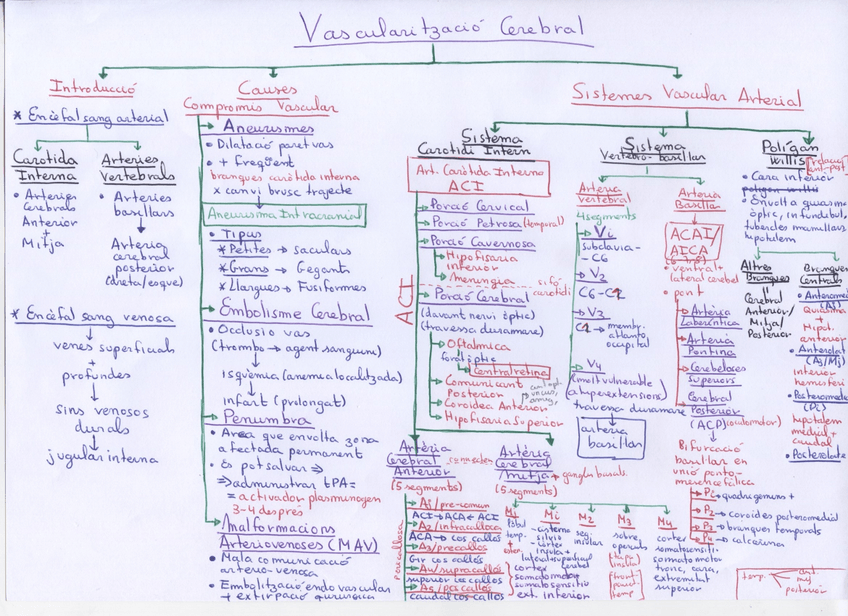 Vascularització Cerebral
Introducció
* Encèfal sang arterial
Carotida
Interna
• Arteries
Cerebrals
Anterior
+
Mitja
Arteries
Vertebrals
• Arteries
basilars
Arteria
cerebral
posterior
(dreta/esque)
* Encèfal sang venosa
venes superficials
+
profundes
sins venosos
durals
jugular interna
Causes
Compromis Vascular
Aneurismes
• Dilatació paret vas
• + freqüent
branques caròtida interna
x canvi brusc trajecte
Aneurisma Intracranial
• Tipus
* Petites → saculars
* Grans → Gegants
* Llargues → Fusiformes
Embolisme Cerebral
• Oclusio vas
(trombo → agent sanguini)
isquèmica (anemia localitzada)
infart (prolongat)
Penumbra
• Area que envolta zona
afectada permanent
• Es pot salvar ⇒
⇒ administrar tPA =
= activador plasminogen
3-4 després
Malformacions
Arteriovenoses (MAV)
• Mala comunicació
arterio-venosa
• Embolització endovascular
+ extirpació quirurgica
Sistemes Vascular Arterial
Sistema
Carotidi Intern
Art. Caròtida Interna
ACI
ACI
Porció Cervical
Porció Petrosa (temporal)
Porció Cavernosa
Hipofisaria
inferior
Meningia
sifó
carotidi
Porció Cerebral
(davant nervi òptic)
(travessa duramare)
Oftalmica
forat òptic
Central retina
Comunicant
Posterior
Coroidea Anterior
Hipofisaria Superior
Artèria
Cerebral
Anterior
(5 segments)
A1/pre-comun
ACI → ACA ← ACI
A2/infracallosa
ACA → cos callós
A3/precallos
Gir cos callós
A4/supracallos
superior cos callos
A5/poscallos
caudal cos callos
Artèria
Cerebral
Mitja
+ ganglis basals
(5 segments)
M1
M2
M3
M4
cortex
somatomotor
somatosensitiu
ext. inferior
cortex
somatosensiti-
somatomoto
tronc, cara,
extremitat
superior
Sistema
Vertebro-basilar
Arteria
Vertebral
4 segments
V1
subclavia-
-C6
V2
V3
membr.
atlanto
occipital
V4
(molt vulnerable
a hiperextensions)
travessa duramare
arteria
basilar
Arteria
Basilar
ACAI/
AICA
• ventral +
lateral cerebel
• pont
Artèria
Laberíntica
Artèria
Pontina
Cerebeloses
Superiors
Cerebral
Posterior
(ACP) (oculomotor)
Bifurcació
basilar en
unió ponto-
mesencefàlica
P1 → quadrigemins +
P2 → coroides posteromedial
P3 → branques temporals
P4 → calcarina
Polígon
Willis
• Cara inferior
• Envolta quiasma
òptic, infundibul,
tubercles mamillars,
hipotalem
Altres
Branques
Cerebral
Anterior/
Mitja/
Posterior
Branques
Centrals
• Anteromed
Quiasma
+
Hipot.
anterior
• Anterolat
interior
hemisferi
• Posteromedia
hipotalem
medial +
caudal
• Posterolate
temp.
posterior